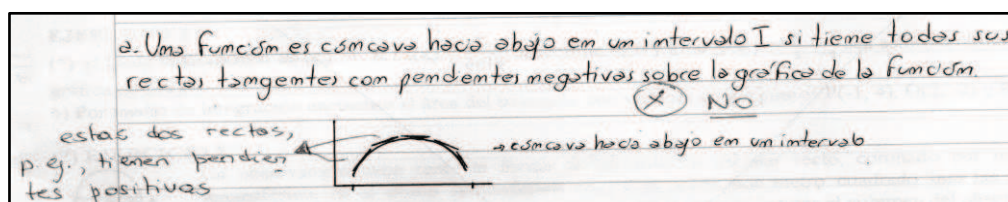 a. Una función es cóncava hacia abajo en un intervalo I si tiene todas sus
rectas tangentes con pendientes negativas sobre la gráfica de la función.
X NO
estas dos rectas,
p.ej., tienen pendien
tes positivas
→ cóncava hacia abajo en un intervalo